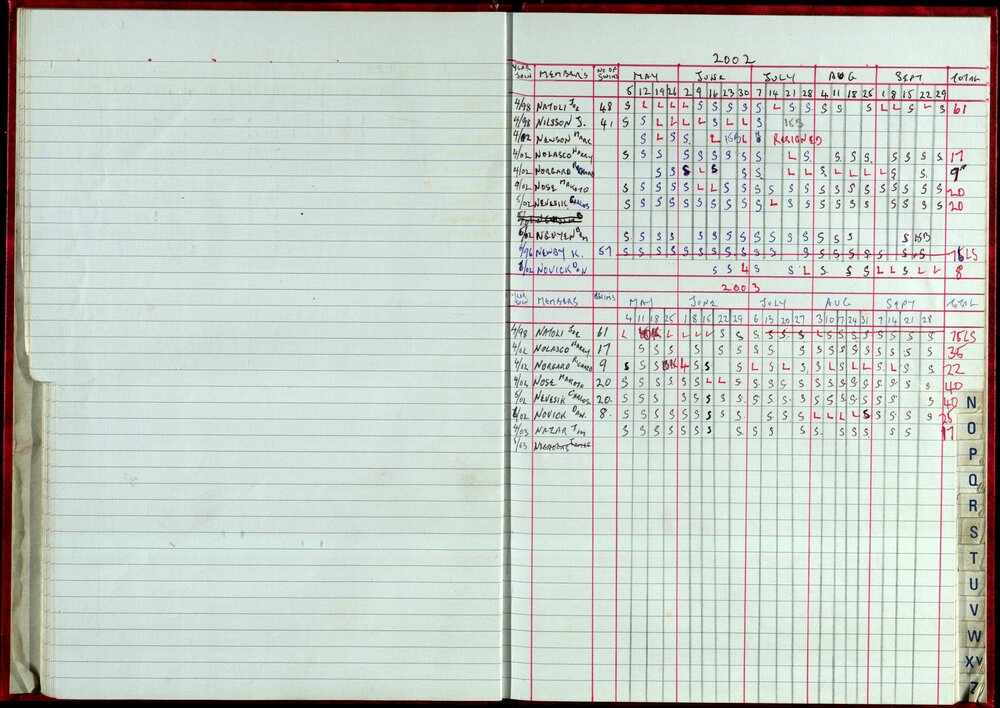 2002
YEAR JOIN MEMBER'S NO OF SWIMS MAY JUNE JULY AUG SEPT TOTAL
5 12 19 26 2 9 16 23 30 7 14 21 28 4 11 18 25 1 8 15 22 29
4/98 NATOLI JOE 48 S L L L L S S S S S L S S S S S L L S L S 61
4/98 NILSSON J. 41 S S L L L L S L L S ISB
4/02 NEWSON MARC S L S S L ISB L S RESIGNED
4/02 NOLASCO HARRY S S S S S S S S S L S S S S S S S S 17
4/02 NORGARD RICHARD S S S L S S S L L S L L L L S S 9
9/02 NOSE MAKOTO S S S S S L L S S S S S S S S S S S S S S S 20
5/02 NEVESIK CARLOS S S S S S S S S S S L S S S S S S S S S S 20
6/02 NGUYEN BEN S S S S S S S S S S S S S S S S S ISB
9/96 NEWBY K. 57 S S S S S S S S S S S S S S S S S S S S 75LS
6/02 NOVICK DON S S L S S L S S S L L S L L 8
2003
YEAR JOIN MEMBERS SWIMS MAY JUNE JULY AUG SEPT TOTAL
4 11 18 25 1 8 15 22 29 6 13 20 27 3 10 17 24 31 7 14 21 28
4/98 NATOLI JOE 61 L L L L L S S S S S S L S S S S S S S S 75LS
4/02 NOLASCO HARRY 17 S S S S S S S S S S S S S S S S S S S 36
4/02 NORGARD RICHARD 9 S S S S S L S L S L S L L L S L S 22
4/02 NOSE MAKOTO 20 S S S S S S L L S S S S S S S S S S S S S S 40
5/02 NEVESIK CARLOS 20. S S S S S S S S S S S S S S S S S S S S 40
6/02 NOVICK DON. 8. S S S S S S S S S S S S L L L L S S S S S 25
4/03 NAZAR JIM S S S S S S S S S S S S S S S S S 17
5/03
N
O
P
Q
R
S
T
U
V
W
XY
Z